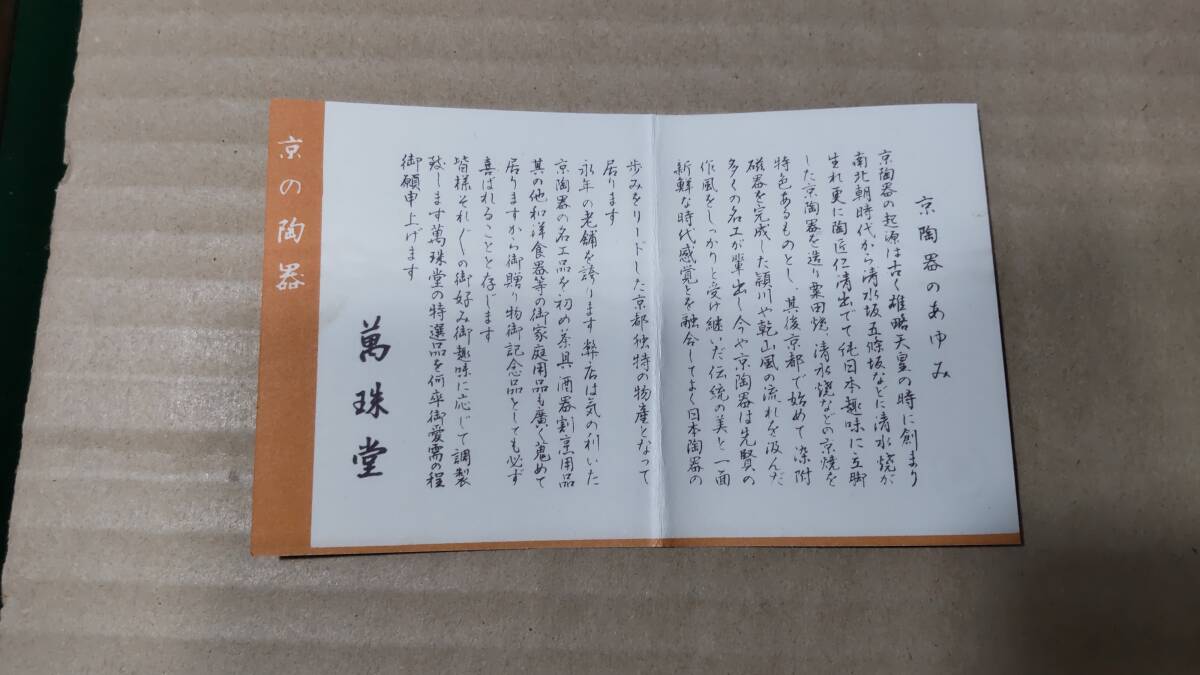 京陶器のあゆみ
京陶器の起源は古く雄略天皇の時に創まり
南北朝時代から清水坂五條坂などに清水焼が
生れ更に陶匠仁清出でて純日本趣味に立脚
した京陶器を造り粟田焼、清水焼などの京焼を
特色あるものとし、其後京都で始めて染附
磁器を完成した頴川や乾山風の流れを汲んだ
多くの名工が輩出し今や京陶器は先賢の
作風をしっかりと受け継いだ伝統の美と一面
新鮮な時代感覚とを融合してよく日本陶器の
歩みをリードした京都独特の物産となって
居ります
永年の老舗を誇ります弊店は気の利いた
京陶器の名工品を初め茶具酒器割烹用品
其の他和洋食器等の御家庭用品も廣く蒐めて
居りますから御贈り物御記念品としても必ず
喜ばれることと存じます
皆様それ〲の御好み御趣味に応じて調製
致します萬珠堂の特選品を何卒御愛需の程
御願申上げます
萬珠堂
京の陶器